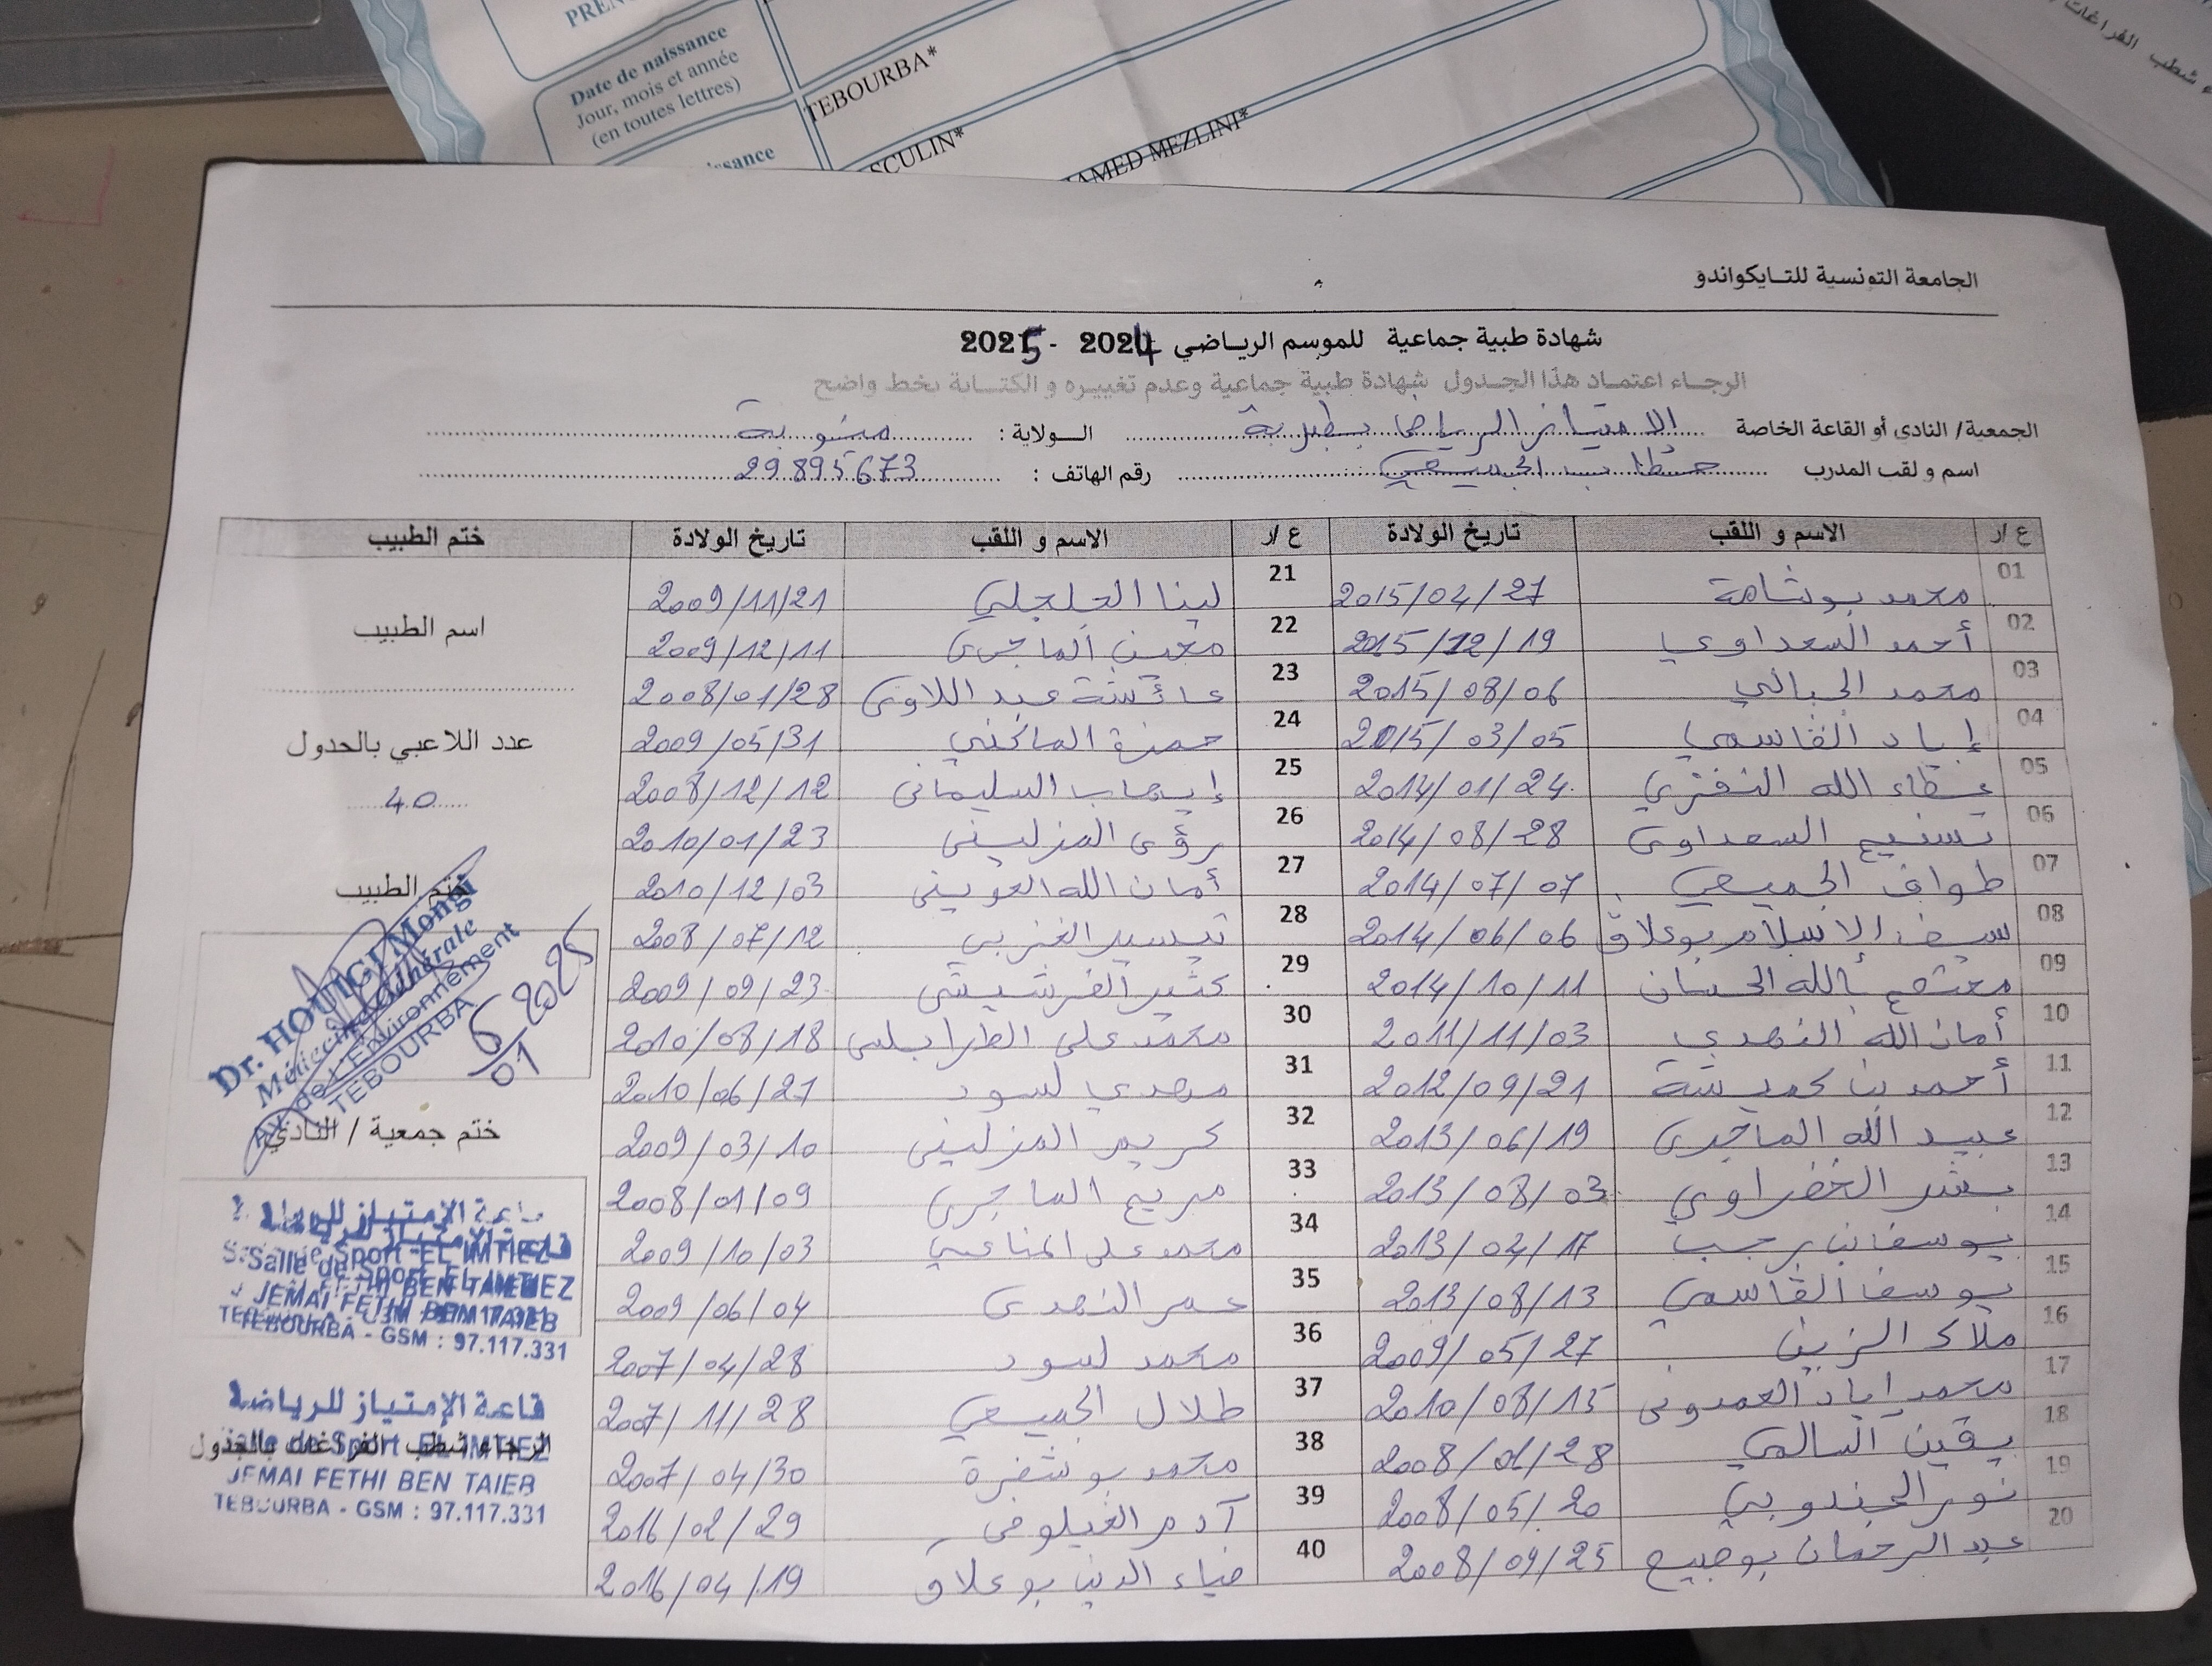 PREN
Date de naissance
Jour, mois et année
(en toutes lettres)
TEBOURBA*
issance
SCULIN*
AMED MEZLINI*
شطب الفراغات
الجامعة التونسية للتايكواندو
شهادة طبية جماعية للموسم الرياضي 2024 - 2025
الرجاء اعتماد هذا الجدول شهادة طبية جماعية وعدم تغييره و الكتابة بخط واضح
الجمعية/ النادي أو القاعة الخاصة الامتياز الرياضي بطبربة الولاية : منوبة
اسم و لقب المدرب خطاب الجميعي رقم الهاتف : 29.895.673
ع/ر الاسم و اللقب تاريخ الولادة ع/ر الاسم و اللقب تاريخ الولادة ختم الطبيب
01 محمد بوشامة 2015/04/27 21 لينا الجلجلي 2009/11/21
02 أحمد السعداوي 2015/12/19 22 معين الماجري 2009/12/11
03 محمد الجبالي 2015/08/06 23 عائشة عبد اللاوي 2008/01/28
04 إياد القاسمي 2015/03/05 24 حمزة الماكني 2009/05/31
05 عطاء الله النفزي 2014/01/24 25 إيهاب السليماني 2008/12/12
06 تسنيم السعداوي 2014/08/28 26 رؤى المزليني 2010/01/23
07 طواف الجميعي 2014/07/07 27 أمان الله العويني 2010/12/03
08 سيف الاسلام بوعلاق 2014/06/06 28 تيسير الغزبي 2008/07/12
09 معتصم بالله الحسان 2014/10/11 29 كثير القرشيشي 2009/09/23
10 أمان الله النهدي 2011/11/03 30 محمد علي الطرابلسي 2010/08/18
11 أحمد بن حميشة 2012/09/21 31 مهدي لسود 2010/06/27
12 عبيد الله الماجري 2013/06/19 32 كريم المزليني 2009/03/10
13 بشر الخضراوي 2013/08/03 33 مريم الماجري 2008/01/09
14 يوسف بن رجب 2013/04/17 34 محمد علي المناعي 2009/10/03
15 يوسف القاسمي 2013/08/13 35 عمر النهدي 2009/06/04
16 ملاك الزين 2009/05/27 36 محمد لسود 2007/04/28
17 محمد إياد العمدوني 2010/08/15 37 طلال الجميعي 2007/11/28
18 يقين السالمي 2008/01/28 38 محمد بوشفرة 2007/04/30
19 نور الجندوبي 2008/05/20 39 آدم الغيلوفي 2016/02/29
20 عبد الرحمان بوصبيع 2008/09/25 40 ضياء الدين بوعلاق 2016/04/19
اسم الطبيب
عدد اللاعبي بالجدول
40
ختم الطبيب
Dr. HOUIGI Mongi
Médecine Générale
Av. de L'Environnement
TEBOURBA
6/01 2025
ختم جمعية / النادي
قاعة الإمتياز للرياضة
Salle de Sport EL IMTIEZ
JEMAI FETHI BEN TAIEB
TEBOURBA - GSM : 97.117.331
قاعة الإمتياز للرياضة
Salle de Sport EL IMTIEZ
الرجاء شطب الفراغات بالجدول
JEMAI FETHI BEN TAIEB
TEBOURBA - GSM : 97.117.331